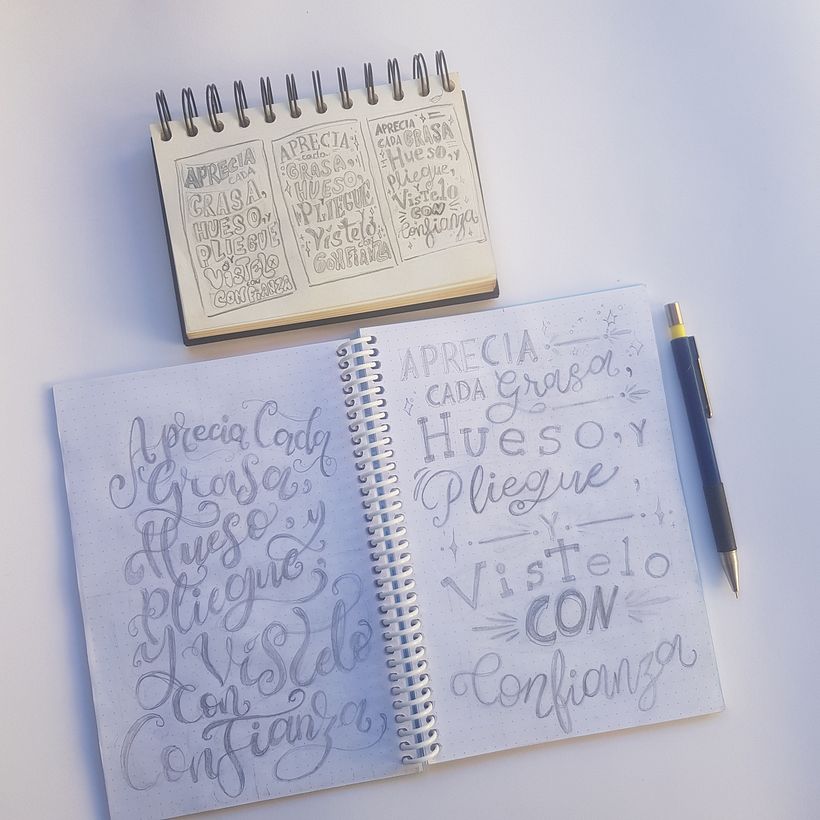 APRECIA
CADA
GRASA,
HUESO, Y
PLIEGUE
Y
VISTELO
CON
CONFIANZA
APRECIA
cada
GRASA,
HUESO,
PLIEGUE
y
Vistelo
con
CONFIANZA
APRECIA
CADA GRASA
Hueso, y
pliegue,
y
Vistelo
CON
Confianza
Aprecia Cada
Grasa,
Hueso, y
pliegue,
y Vistelo
Con
Confianza
APRECIA
CADA Grasa,
Hueso, Y
Pliegue,
Y
VisTelo
CON
Confianza